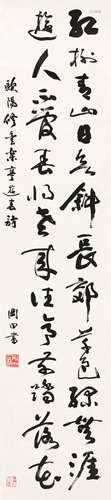 紅樹青山日欲斜長郊草色綠無涯
遊人不管春將老來往亭前踏落花
歐陽修豐樂亭遊春詩
書